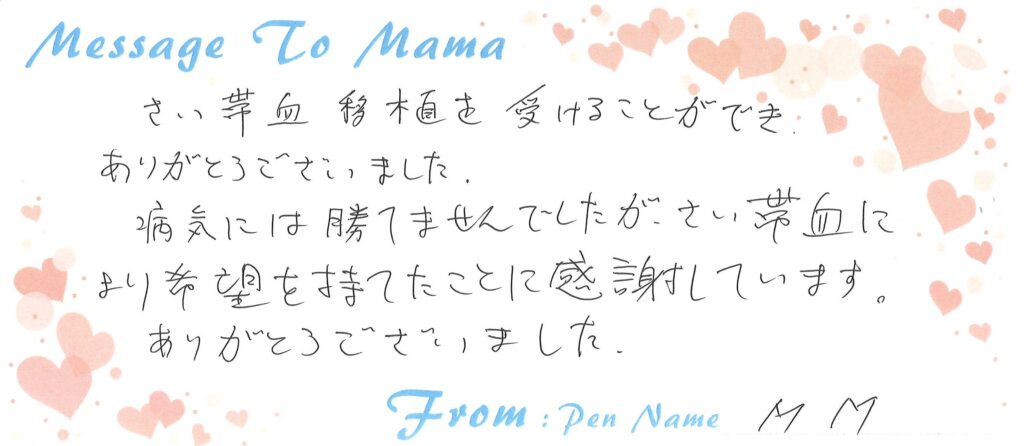 Message To Mama
さい帯血 移植を 受けることができ.
ありがとうございました.
病気には勝てませんでしたが、さい帯血に
より希望を持てたことに感謝しています。
ありがとうございました.
From : Pen Name M M